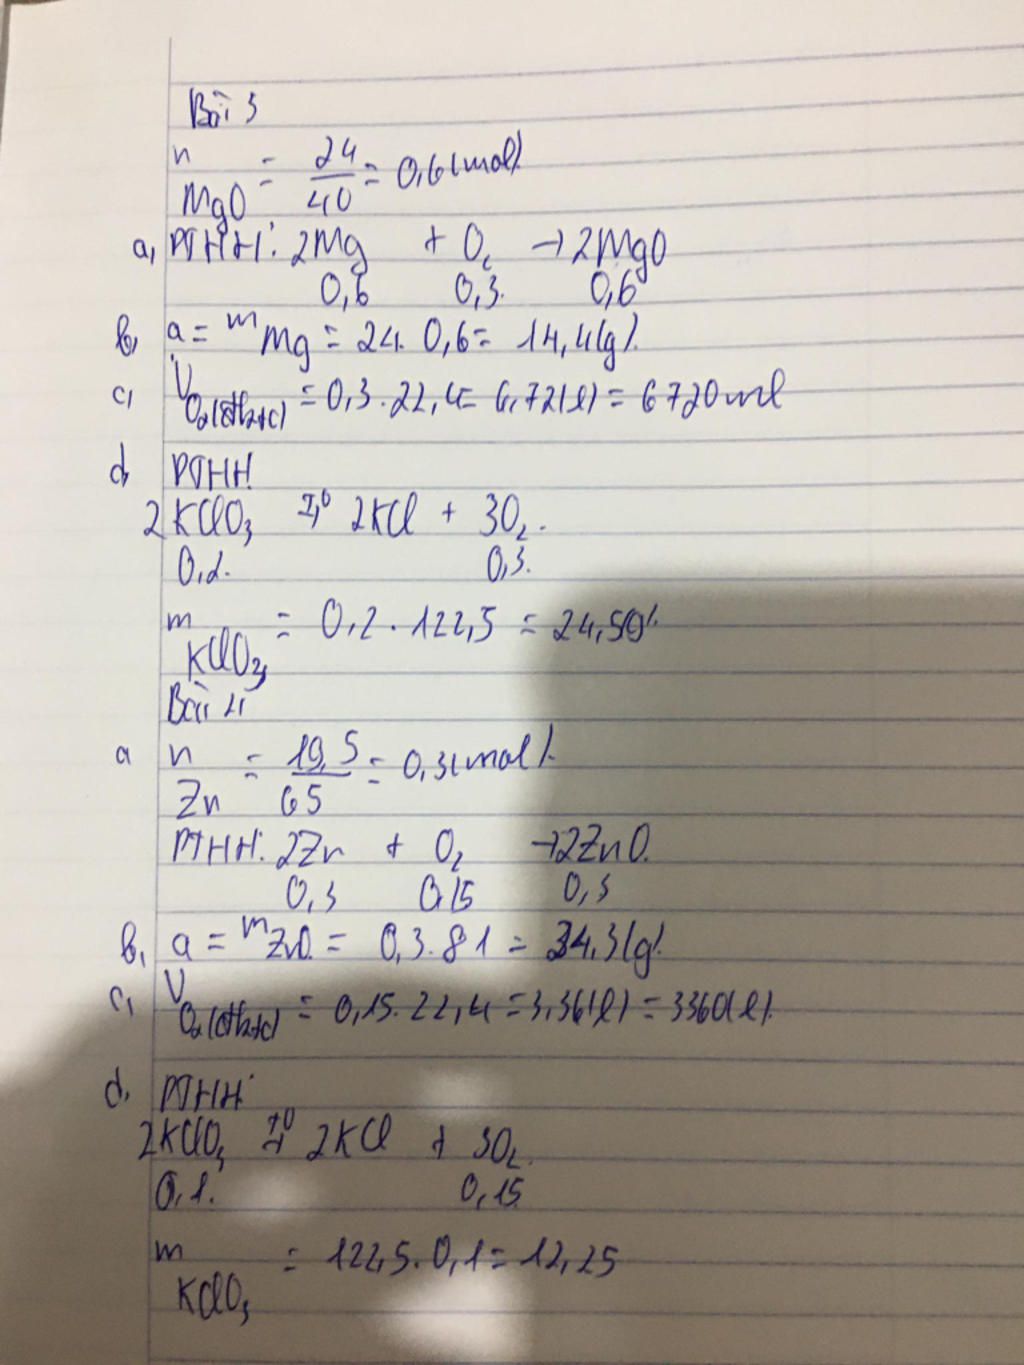 Bài 3
n MgO = 24/40 = 0,6(mol).
a, PTHH: 2Mg + O2 → 2MgO
0,6 0,3. 0,6
b, a = mMg = 24. 0,6 = 14,4(g).
c, VO2(đktc) = 0,3.22,4 = 6,72(l) = 6720ml
d, PTHH
2KClO3 t0→ 2KCl + 3O2.
0,2. 0,3.
m KClO3 = 0,2.122,5 = 24,5g.
Bài 4
a n Zn = 19,5/65 = 0,3(mol).
PTHH: 2Zn + O2 → 2ZnO.
0,3 0,15 0,3
b, a = mZnO = 0,3.81 = 34,3(g).
c, VO2(đktc) = 0,15.22,4 = 3,36(l) = 3360(l).
d, PTHH:
2KClO3 t0→ 2KCl + 3O2.
0,1. 0,15
m KClO3 = 122,5.0,1 = 12,25